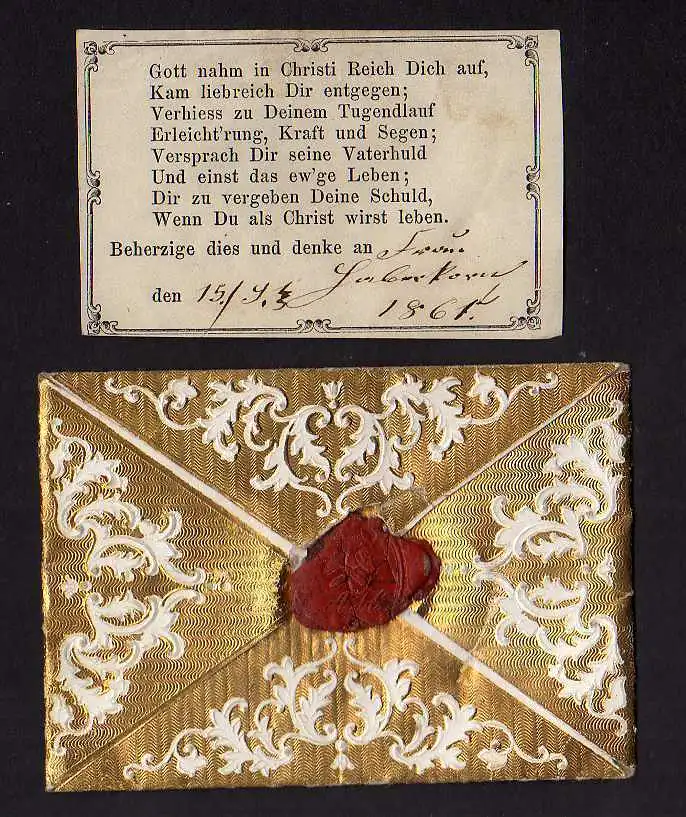 Gott nahm in Christi Reich Dich auf,
Kam liebreich Dir entgegen;
Verhiess zu Deinem Tugendlauf
Erleicht'rung, Kraft und Segen;
Versprach Dir seine Vaterhuld
Und einst das ew'ge Leben;
Dir zu vergeben Deine Schuld,
Wenn Du als Christ wirst leben.
Beherzige dies und denke an Frau
Haberkorn
den 15./9. 1861.